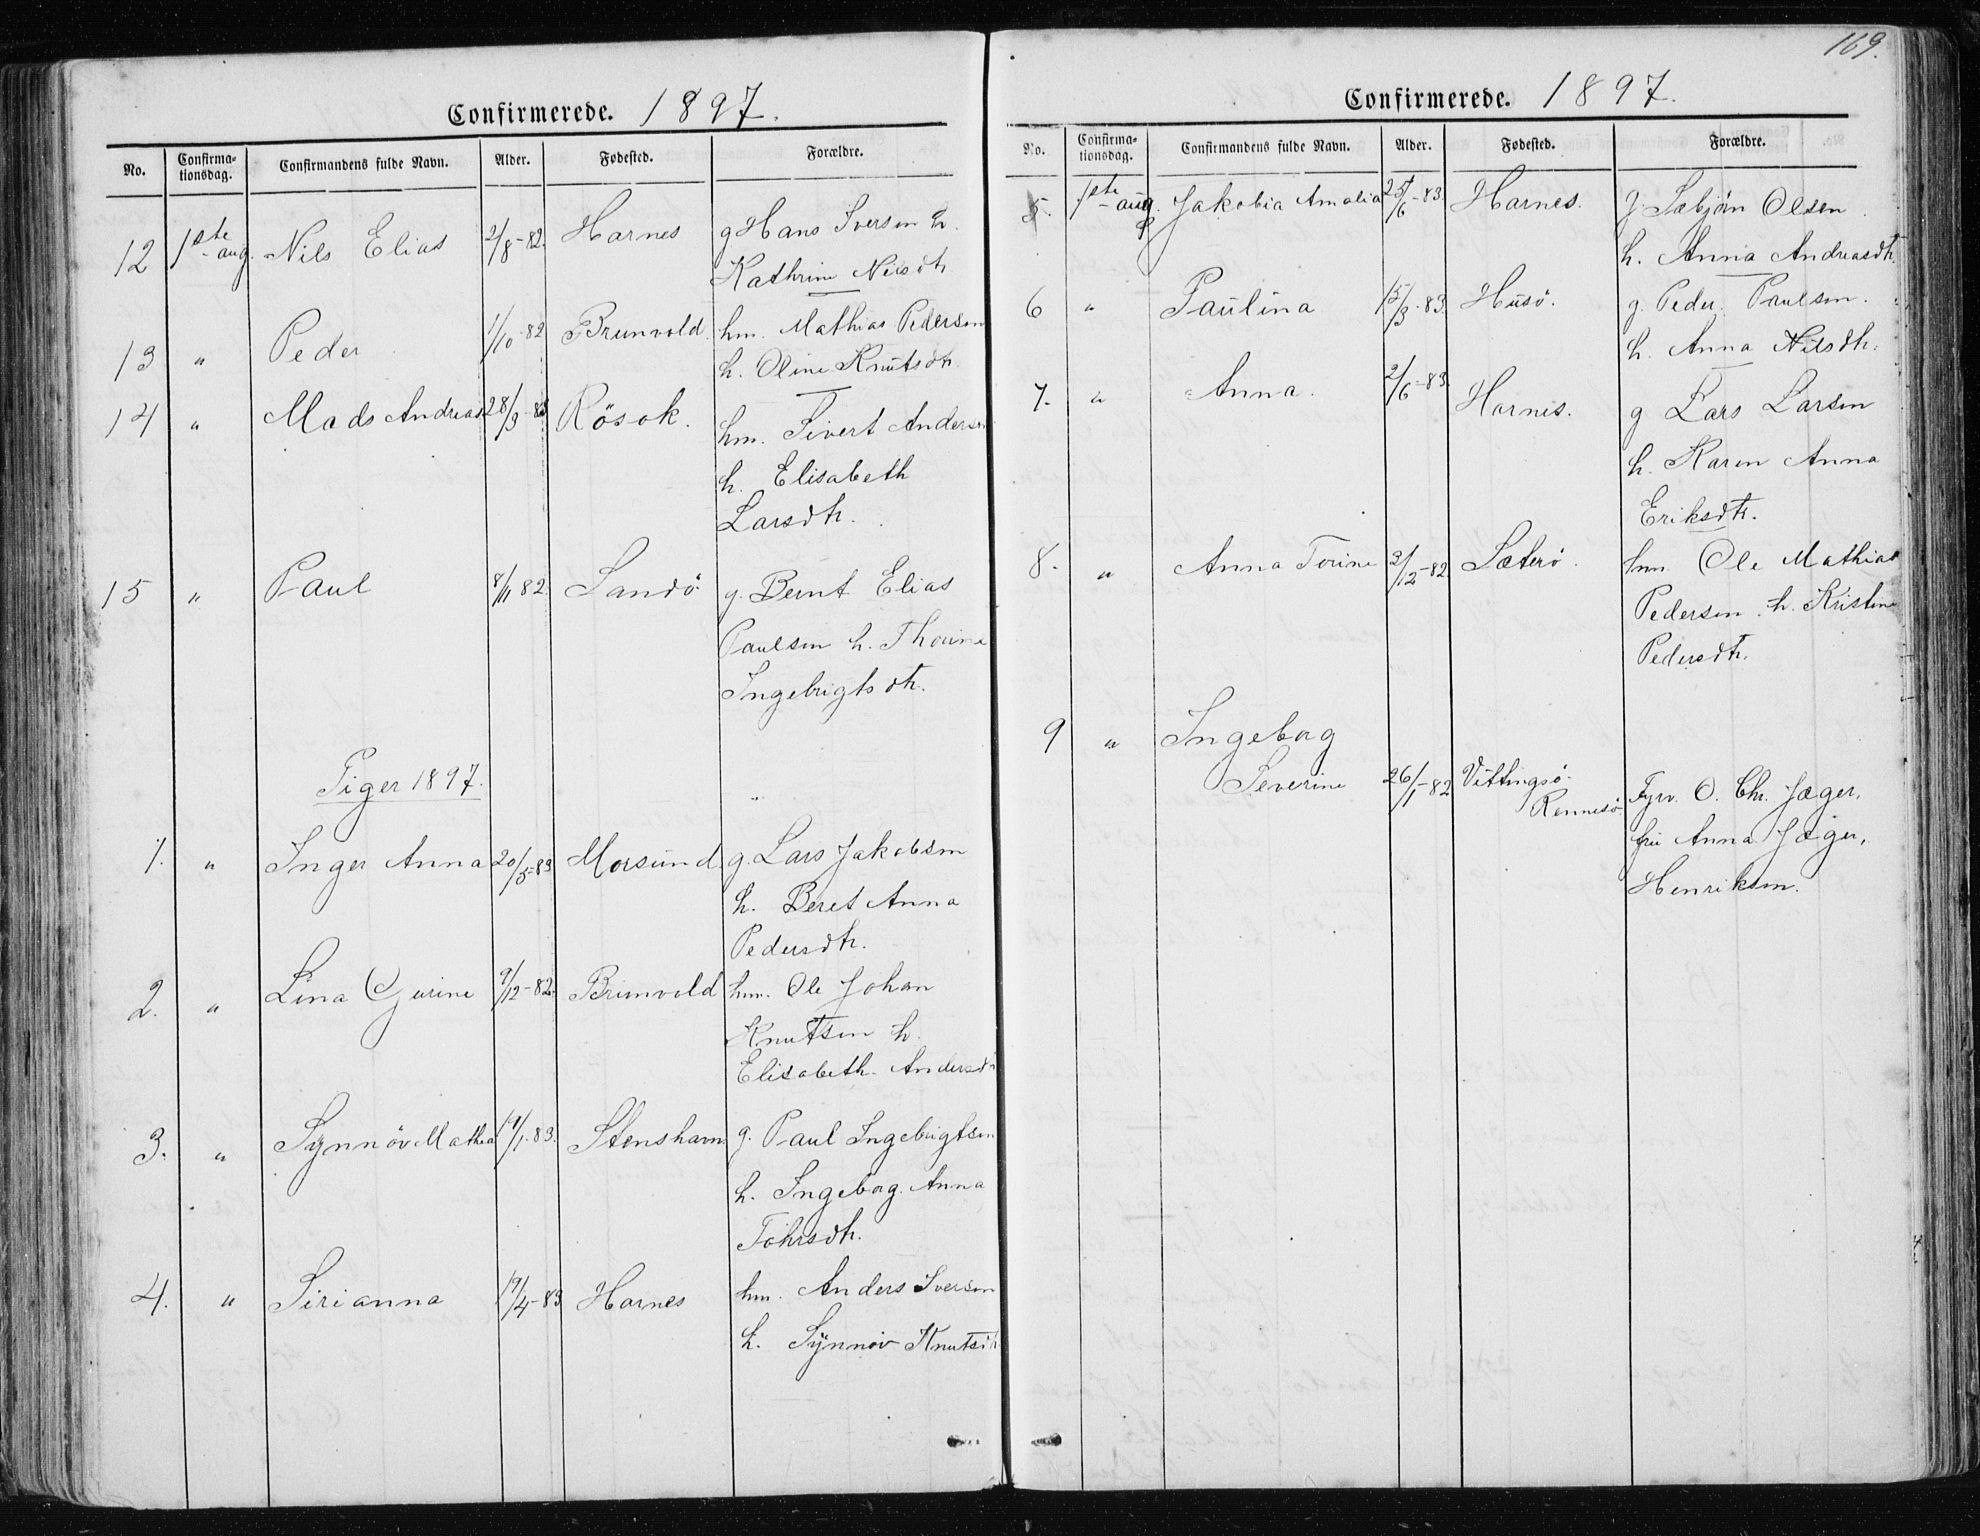 Confirmerede. 1897.
No.
Confirma-
tionsdag.
Confirmandens fulde Navn.
Alder.
Fødested.
Forældre.
12 1ste aug. Nils Elias 2/8-82. Harnes g Hans Iversen h.
Kathrine Nilsdtr
13 " Peder 1/10-82 Brunvold. hm. Mathias Pedersen
h. Oline Knutsdtr.
14 " Mads Andreas 28/3-83 Rösok. hm. Sivert Andersen
h. Elisabeth
Larsdtr.
15 " Paul 8/11 82. Sandö g. Bernt Elias
Paulsen h. Thorine
Ingebrigtsdtr.
Piger 1897.
1. " Inger Anna 20/5-83 Morsund. g. Lars Jakobsen
h. Beret Anna
Pedersdtr.
2. " Lina Gurine 9/12-82. Brunvold hm. Ole Johan
Knutsen h.
Elisabeth Andersdtr
3. " Synnöv Mathea 19/1-83. Stenshavn g. Paul Ingebrigtsen
h. Ingeborg Anna
4. " Sirianna 19/4-83 Harnes hm. Anders Iversen
h. Synnöv Knutsdtr
169.
Confirmerede. 1897.
No.
Confirma-
tionsdag.
Confirmandens fulde Navn.
Alder.
Fødested.
Forældre.
5. 1ste aug. Jakobia Amalia 25/6-83. Harnes. g. Sæbjörn Olsen.
h. Anna Andreasdtr.
6 " Paulina 15/3-83. Husö. g. Peder Paulsen.
h. Anna Nilsdtr.
7. " Anna. 2/6-83. Harnes. g Lars Larsen
h. Karen Anna
Eriksdtr.
8. " Anna Torine 3/12-82. Sæterö. hm. Ole Mathias
Pedersen h. Kristine
Pedersdtr.
9 " Ingeborg
Severine 26/1-82 Vittingsö.
Rennesö Fyrv. O. Chr. Jæger,
fru Anna Jæger,
Henriksen.